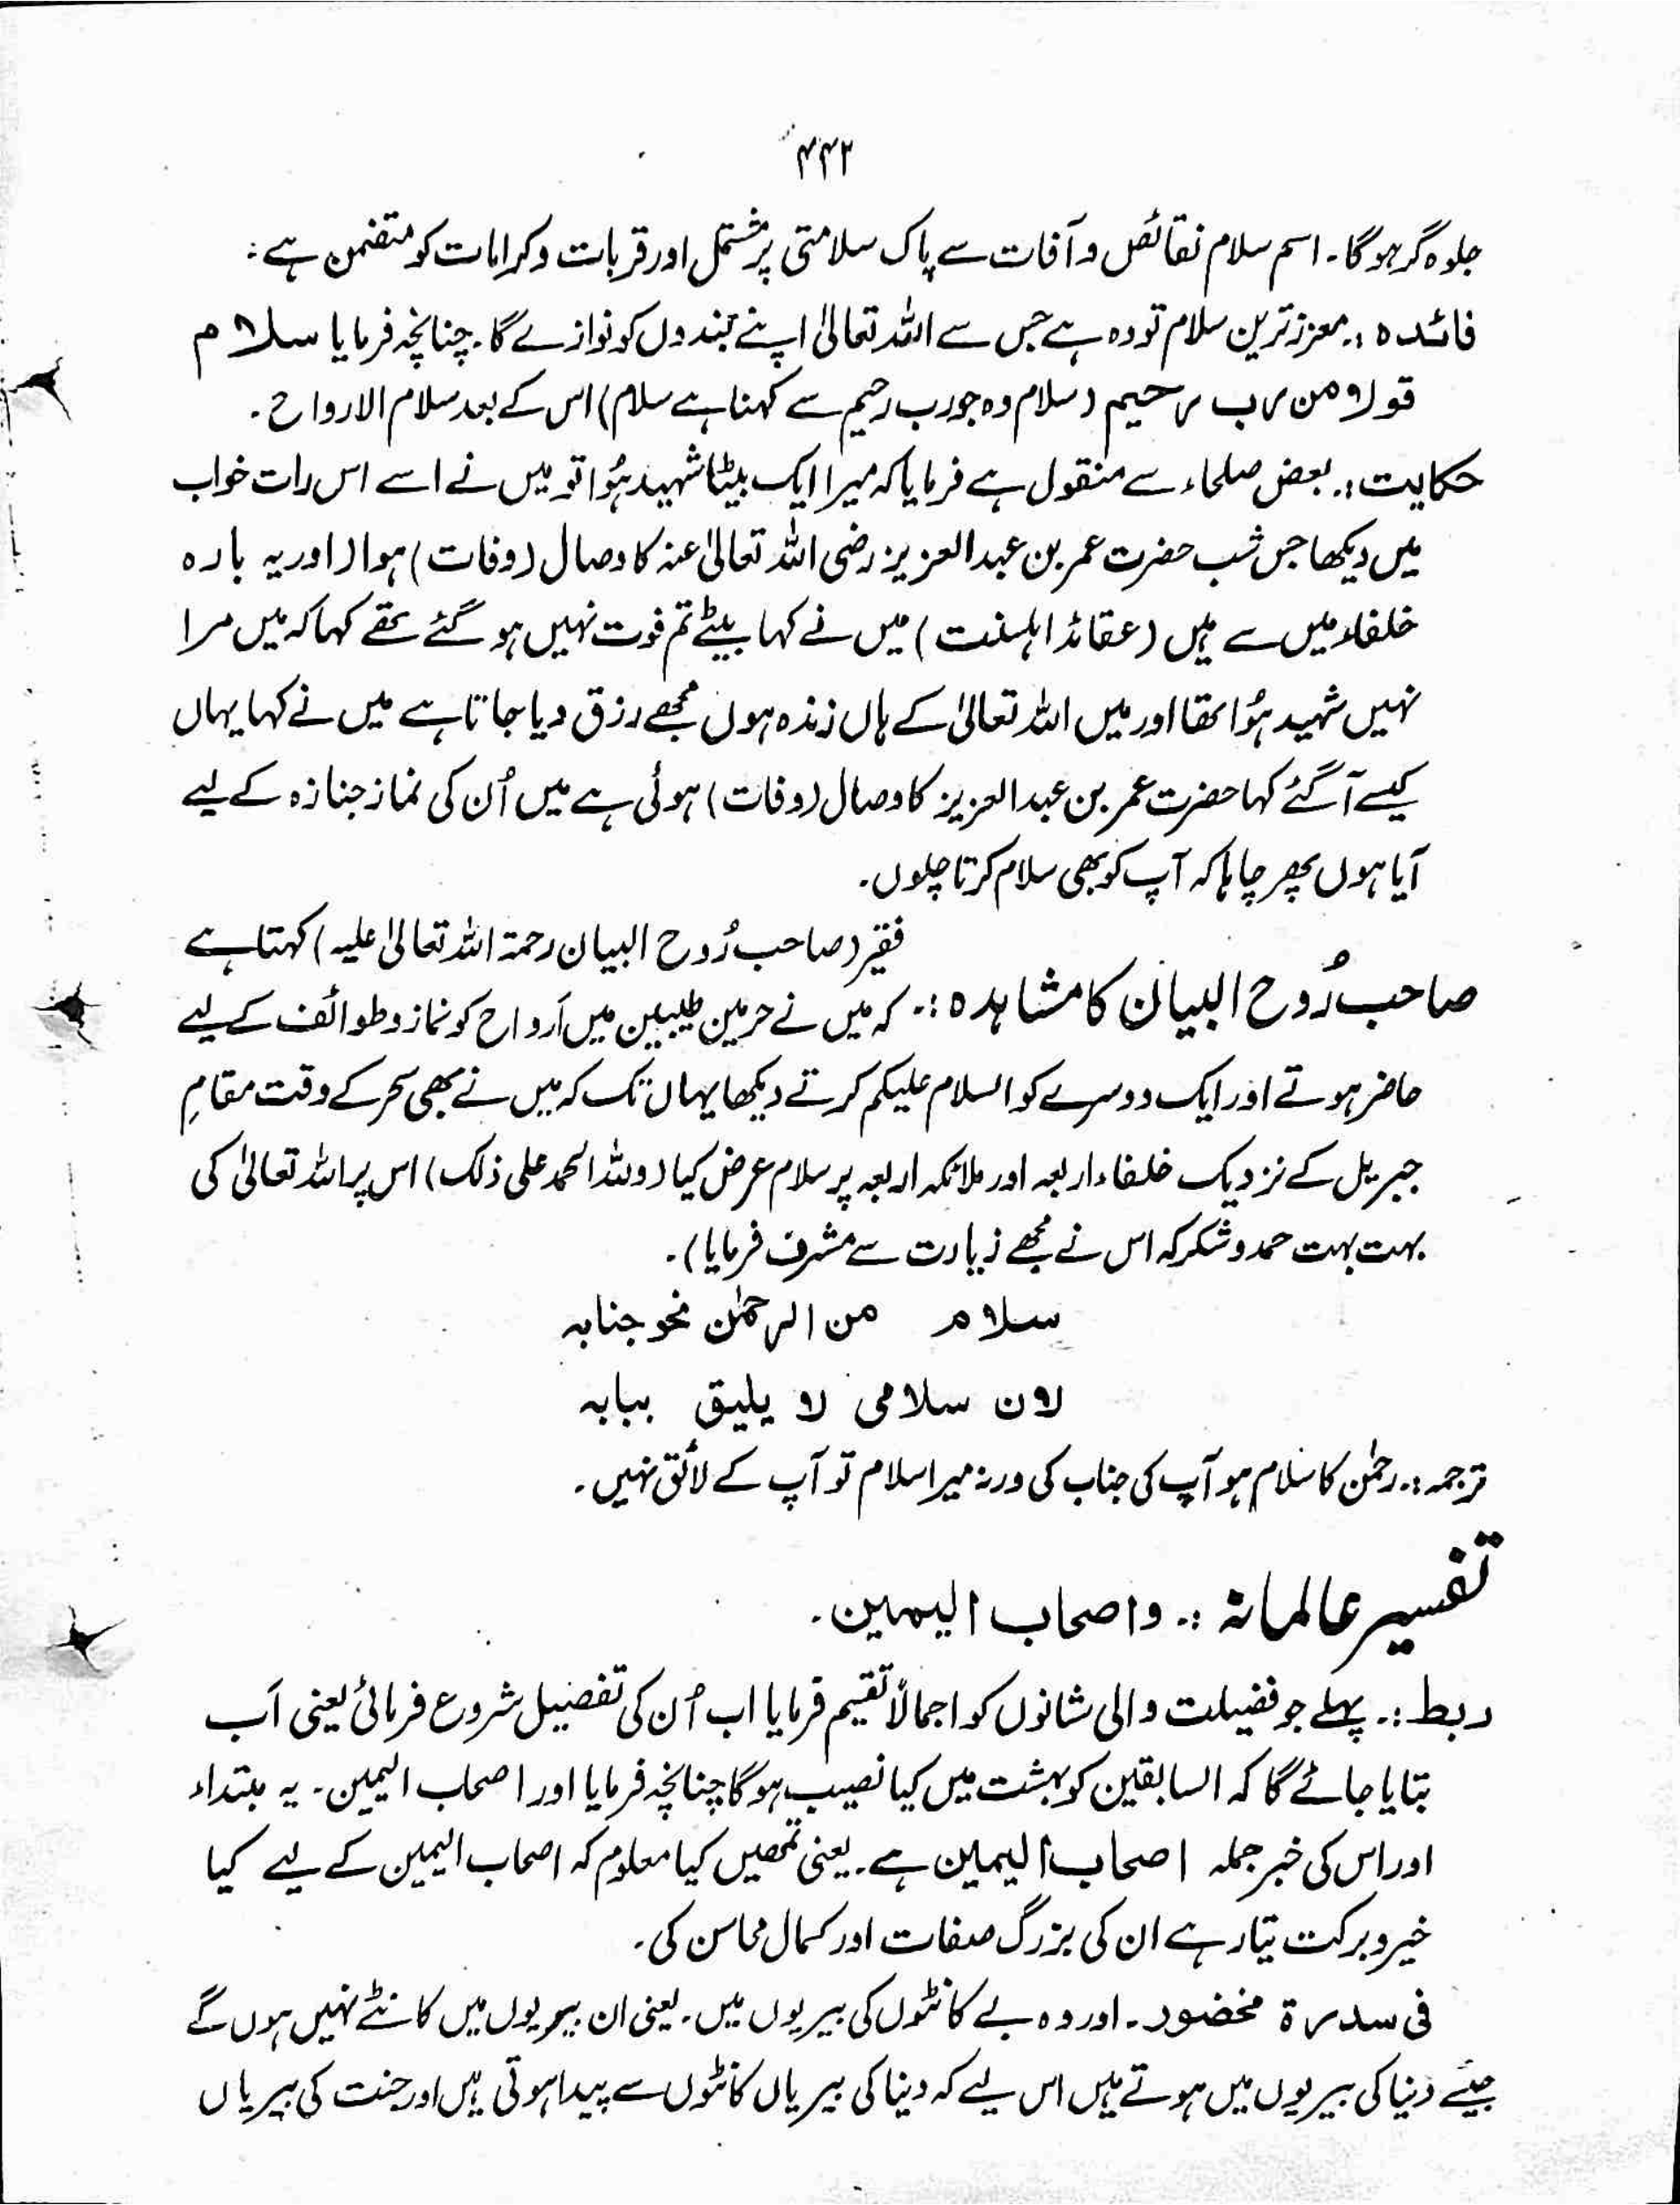 ۴۴۲
جلوہ گر ہوگا۔ اسم سلام نقائص و آفات سے پاک سلامتی پر مشتمل اور قربات و کرامات کو متضمن ہے:
فائدہ :۔ معزز ترین سلام تو وہ ہے جس سے اللہ تعالیٰ اپنے بندوں کو نوازے گا۔ چنانچہ فرمایا سلام
قولا من رب رحیم (سلام وہ جو رب رحیم سے کہنا ہے سلام) اس کے بعد سلام الارواح۔
حکایت :۔ بعض صلحاء سے منقول ہے فرمایا کہ میرا ایک بیٹا شہید ہُوا تو میں نے اسے اس رات خواب
میں دیکھا جس شب حضرت عمر بن عبدالعزیز رضی اللہ تعالیٰ عنہ کا وصال (وفات) ہوا (اور یہ بارہ
خلفاء میں سے ہیں (عقائد اہلسنت) میں نے کہا بیٹے تم فوت نہیں ہو گئے تھے کہا کہ میں مرا
نہیں شہید ہُوا تھا اور میں اللہ تعالیٰ کے ہاں زندہ ہوں مجھے رزق دیا جاتا ہے میں نے کہا یہاں
کیسے آ گئے کہا حضرت عمر بن عبدالعزیز کا وصال (وفات) ہوئی ہے میں اُن کی نماز جنازہ کے لیے
آیا ہوں پھر چاہا کہ آپ کو بھی سلام کرتا چلوں۔
فقیر (صاحب رُوح البیان رحمۃ اللہ تعالیٰ علیہ) کہتا ہے
صاحب رُوح البیان کا مشاہدہ :۔ کہ میں نے حرمین طیبین میں اَرواح کو نماز و طوائف کے لیے
حاضر ہوتے اور ایک دوسرے کو السلام علیکم کرتے دیکھا یہاں تک کہ میں نے بھی سحر کے وقت مقامِ
جبریل کے نزدیک خلفاء اربعہ اور ملائکہ اربعہ پر سلام عرض کیا (وللہ الحمد علی ذلک) اس پر اللہ تعالیٰ کی
بہت بہت حمد و شکر کہ اس نے مجھے زیارت سے مشرف فرمایا)۔
سلام من الرحمٰن نحو جنابہ
لان سلامی لا یلیق ببابہ
ترجمہ :۔ رحمٰن کا سلام ہو آپ کی جناب کی ورنہ میرا سلام تو آپ کے لائق نہیں۔
تفسیر عالمانہ :۔ واصحاب الیمین۔
ربط :۔ پہلے جو فضیلت والی شانوں کو اجمالاً تقیم فرمایا اب اُن کی تفصیل شروع فرمائی یعنی اَب
بتایا جائے گا کہ السابقین کو بہشت میں کیا نصیب ہوگا چنانچہ فرمایا اور اصحاب الیمین۔ یہ مبتداء
اور اس کی خبر جملہ اصحاب الیمین ہے۔ یعنی تمھیں کیا معلوم کہ اصحاب الیمین کے لیے کیا
خیر و برکت تیار ہے ان کی بزرگ صفات اور کمال محاسن کی۔
فی سدرۃ مخضود۔ اور وہ بے کانٹوں کی بیریوں میں۔ یعنی ان بیریوں میں کانٹے نہیں ہوں گے
جیسے دنیا کی بیریوں میں ہوتے ہیں اس لیے کہ دنیا کی بیریاں کانٹوں سے پیدا ہوتی ہیں اور جنت کی بیریاں